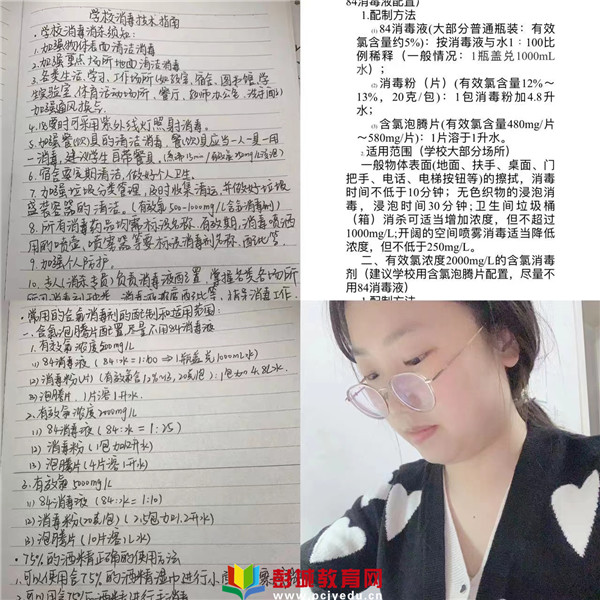 学校消毒技术指南
·学校消毒消杀须知:
1.加强物体表面清洁消毒
2.加强重点场所地面清洁消毒
3.各类生活、学习、工作场所(如教室、宿舍、图书馆、学
生实验室、体育活动场所、餐厅、教师办公室、洗手间)
加强通风换气
4.必要时可采用紫外线灯照射消毒。
5.加强餐(饮)具的清洁消毒,餐(饮)具应当一人一具一用
一消毒,建议学生自带餐具,
6.宿舍要定期清洁,做好个人卫生。
7.加强垃圾分类管理,及时收集清运,并做好垃圾
盛装容器的清洁。(有效氯500-1000mg/L含氯消毒剂)
8.所有消毒药品均需标识名称、有效期,消毒喷洒
用的喷壶、喷雾器等要标识消毒剂名称、配比等。
9.加强个人防护。
10.专人(消杀专员)负责消毒液配置,掌握各类各场所
·常用的含氯消毒剂的配制和适用范围:
一.含氯泡腾片配置,尽量不用84消毒液
1.有效氯浓度500mg/L
(1)84消毒液(84:水=1:100⇒1瓶盖兑1000mL水)
(2)消毒粉(片)(有效氯含12%~13,20克/包):1包加4.8L水.
(3)泡腾片,1片溶1升水.
2.有效氯浓度2000mg/L
(1)84消毒液(84:水=1:25)
(2)消毒粉(1包加1.2升水)
(3)泡腾片(4片溶1升水)
3.有效氯5000mg/L
(1)84消毒液(84:水=1:10)
(2)消毒粉(20克/包)(2.5包加1.2升水)
(3)泡腾片(10片溶1L水)
·75%的酒精正确的使用方法
84消毒液配置)
1.配制方法
(1)84消毒液(大部分普通瓶装:有效
氯含量约5%):按消毒液与水1:100比
例稀释(一般情况:1瓶盖兑1000mL
水);
(2)消毒粉(片)(有效氯含量12%~
13%,20克/包):1包消毒粉加4.8升
水;
(3)含氯泡腾片(有效氯含量480mg/片
~580mg/片):1片溶于1升水。
2.适用范围(学校大部分场所)
一般物体表面(地面、扶手、桌面、门
把手、电话、电梯按钮等)的擦拭,消毒
时间不低于10分钟;无色织物的浸泡消
毒,浸泡时间30分钟;卫生间垃圾桶
(箱)消杀可适当增加浓度,但不超过
1000mg/L;开阔的空间喷雾消毒适当降低
浓度,但不低于250mg/L。
二、有效氯浓度2000mg/L的含氯消毒
剂(建议学校用含氯泡腾片配置,尽量不
用84消毒液)
1.配制方法
彭城教育网
www.pcjyedu.cn